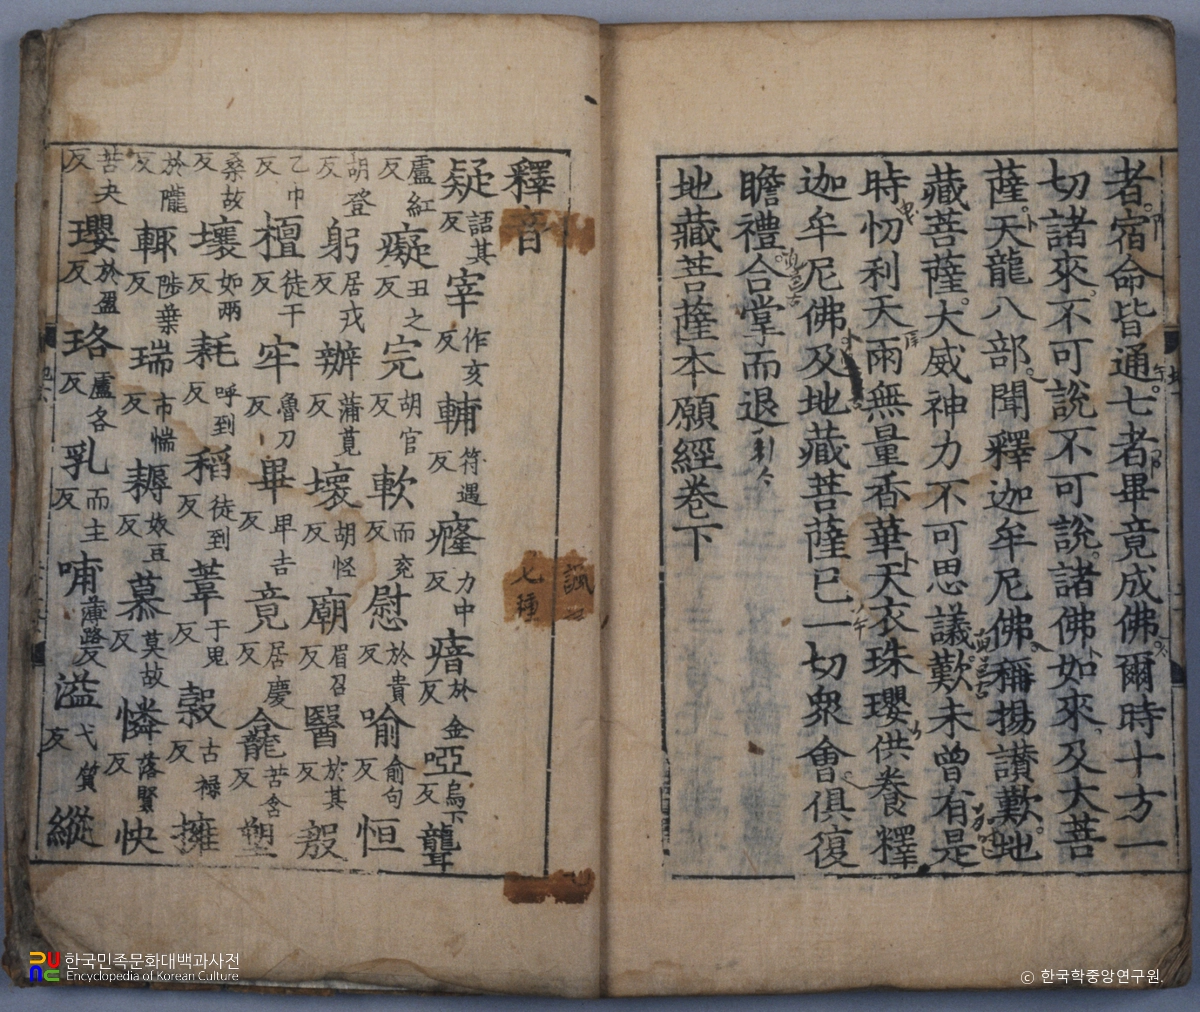 者宿命皆通七者畢竟成佛爾時十方一
切諸來不可說不可說諸佛如來及大菩
薩天龍八部聞釋迦牟尼佛稱揚讃歎地
藏菩薩大威神力不可思議歎未曾有是
時忉利天雨無量香華天衣珠瓔供養釋
迦牟尼佛及地藏菩薩已一切衆會俱復
瞻禮合掌而退
地藏菩薩本願經卷下
釋音
七種
疑語其反宰作亥反輔符遇反癃力中反瘖於金反啞烏下反聾
盧紅反癡丑之反完胡官反軟而兗反慰於貴反喻俞句反恒
胡登反躬居戎反辦蒲莧反壞胡怪反廟眉召反醫於其反殺
乙巾反檀徒干反牢魯刀反畢卑吉反竟居慶反龕苦含反塑
桑故反壤如兩反耗呼到反稻徒到反葦于鬼反穀古祿反擁
於隴反輒陟葉反瑞市惴反耨奴豆反慕莫故反憐落賢反快
苦夬反瓔於盈反珞盧各反乳而主反哺薄路反溢弋質反縱
한국민족문화대백과사전
Encyclopedia of Korean Culture
© 한국학중앙연구원.